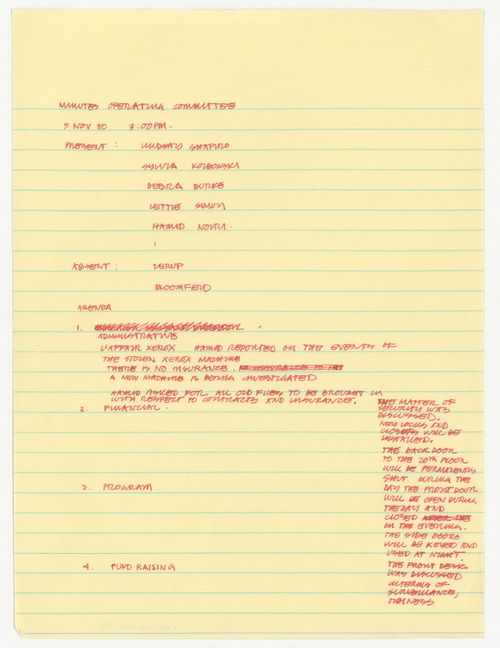 MINUTES OPERATING COMMITTEE
5 NOV 80 7:00 PM.
PRESENT : LINDSAY SHAPIRO
SYLVIA KOLBOWSKI
DEBRA BURKE
LETTIE SIMON
HAMID NOURI.
ABSENT :
BLOOMFIELD
AGENDA
1.
ADMINISTRATIVE
L'AFFAIR XEROX HAMID REPORTED ON THE EVENTS OF
THE STOLEN XEROX MACHINE
THERE IS NO INSURANCE. NO INSURANCE TO
A NEW MACHINE IS BEING INVESTIGATED
HAMID ASKED FOR ALL OLD FILES TO BE BROUGHT IN
WITH RESPECT TO CONTRACTS AND INSURANCE.
2. FINANCIAL.
3. PROGRAM
4. FUND RAISING
THE MATTER OF
SECURITY WAS
DISCUSSED.
NEW LOCKS AND
CLOSERS WILL BE
INSTALLED.
THE BACK DOOR
TO THE 20TH FLOOR
WILL BE PERMANENTLY
SHUT. DURING THE
DAY THE FRONT DOOR
WILL BE OPEN DURING
THE DAY AND
CLOSED AFTER THE
IN THE EVENING.
THE SIDE DOORS
WILL BE KEYED AND
USED AT NIGHT.
THE FRONT DESK
WAS DISCUSSED
OF
SURVEILLANCE,